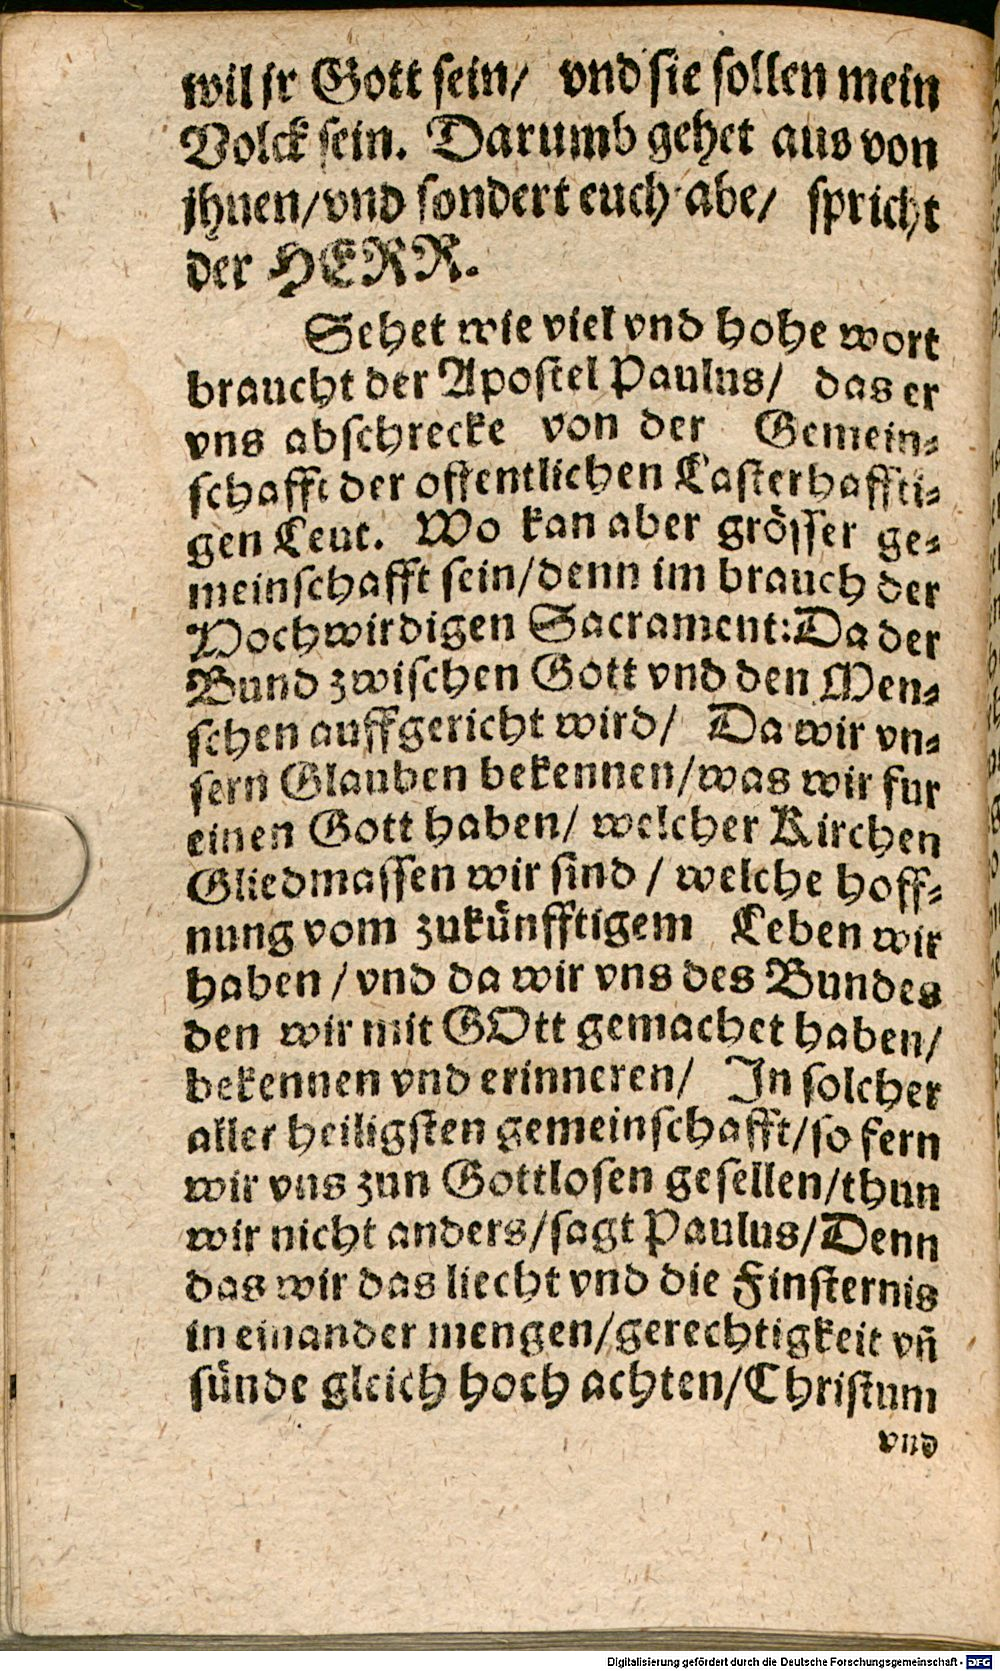 wil jr Gott sein/ vnd sie sollen mein
Volck sein. Darumb gehet aus von
jhnen/vnd sondert euch abe/ spricht
der HERR.
Sehet wie viel vnd hohe wort
braucht der Apostel Paulus/ das er
vns abschrecke von der Gemein-
schafft der offentlichen Lasterhaffti-
gen Leut. Wo kan aber grösser ge-
meinschafft sein/denn im brauch der
Hochwirdigen Sacrament:Da der
Bund zwischen Gott vnd den Men-
schen auffgericht wird/ Da wir vn-
sern Glauben bekennen/was wir fur
einen Gott haben/ welcher Kirchen
Gliedmassen wir sind / welche hoff-
nung vom zukünfftigem Leben wir
haben / vnd da wir vns des Bundes
den wir mit GOtt gemachet haben/
bekennen vnd erinneren/ In solcher
aller heiligsten gemeinschafft/so fern
wir vns zun Gottlosen gesellen/thun
wir nicht anders/sagt Paulus/Denn
das wir das liecht vnd die Finsternis
in einander mengen/gerechtigkeit vñ
sünde gleich hoch achten/Christum
vnd
Digitalisierung gefördert durch die Deutsche Forschungsgemeinschaft - DFG